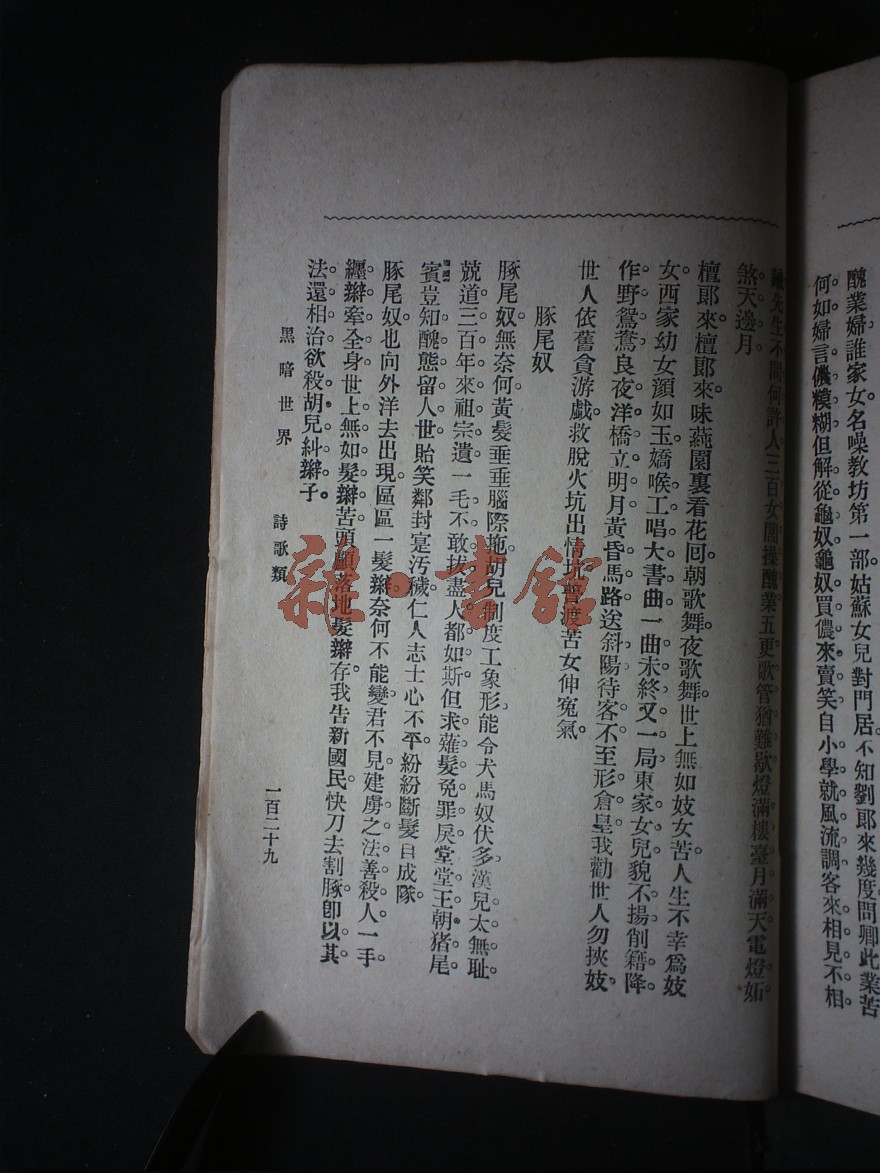 醜業婦誰家女名噪教坊第一部姑蘇女兒對門居。不知劉郎來幾度問卿此業苦
何如婦言儂糢糊但解從龜奴龜奴買儂來賣笑自小學就風流調客來相見不相
先生不問何許人三百女閭操醜業五更歌管猶難歇燈滿樓臺月滿天電燈妬
煞天邊月。
檀郎來檀郎來味燕園裏看花囘朝歌舞夜歌舞世上無如妓女苦人生不幸爲妓
女。西家幼女顏如玉嬌喉工唱大書曲一曲未終又一局東家女兒貌不揚削籍降
作野鴛鴦良夜洋橋立明月黃昏馬路送斜陽待客不至形倉皇我勸世人勿挾妓。
世人依舊貪游戲救脫火坑出情坑誓渡苦女伸寃氣。
豚尾奴
豚尾奴無奈何黃髮垂垂腦際拖胡兒制度工象形能令犬馬奴伏多漢兒太無耻
兢道三百年來祖宗遺一毛不敢拔盡人都如斯但求薙髮免罪戾堂堂王朝猪尾
賓豈知醜態留人世貽笑鄰封寔汚穢仁人志士心不平紛紛斷髮自成隊
豚尾奴也向外洋去出現區區一髮辮奈何不能變君不見建虜之法善殺人一手
纒辮牽全身世上無如髮辮苦頭顱落地髮辮存我告新國民快刀去割豚卽以其
法還相治欲殺胡兒糾辮子。
黑暗世界 詩歌類 一百二十九
雜·書館